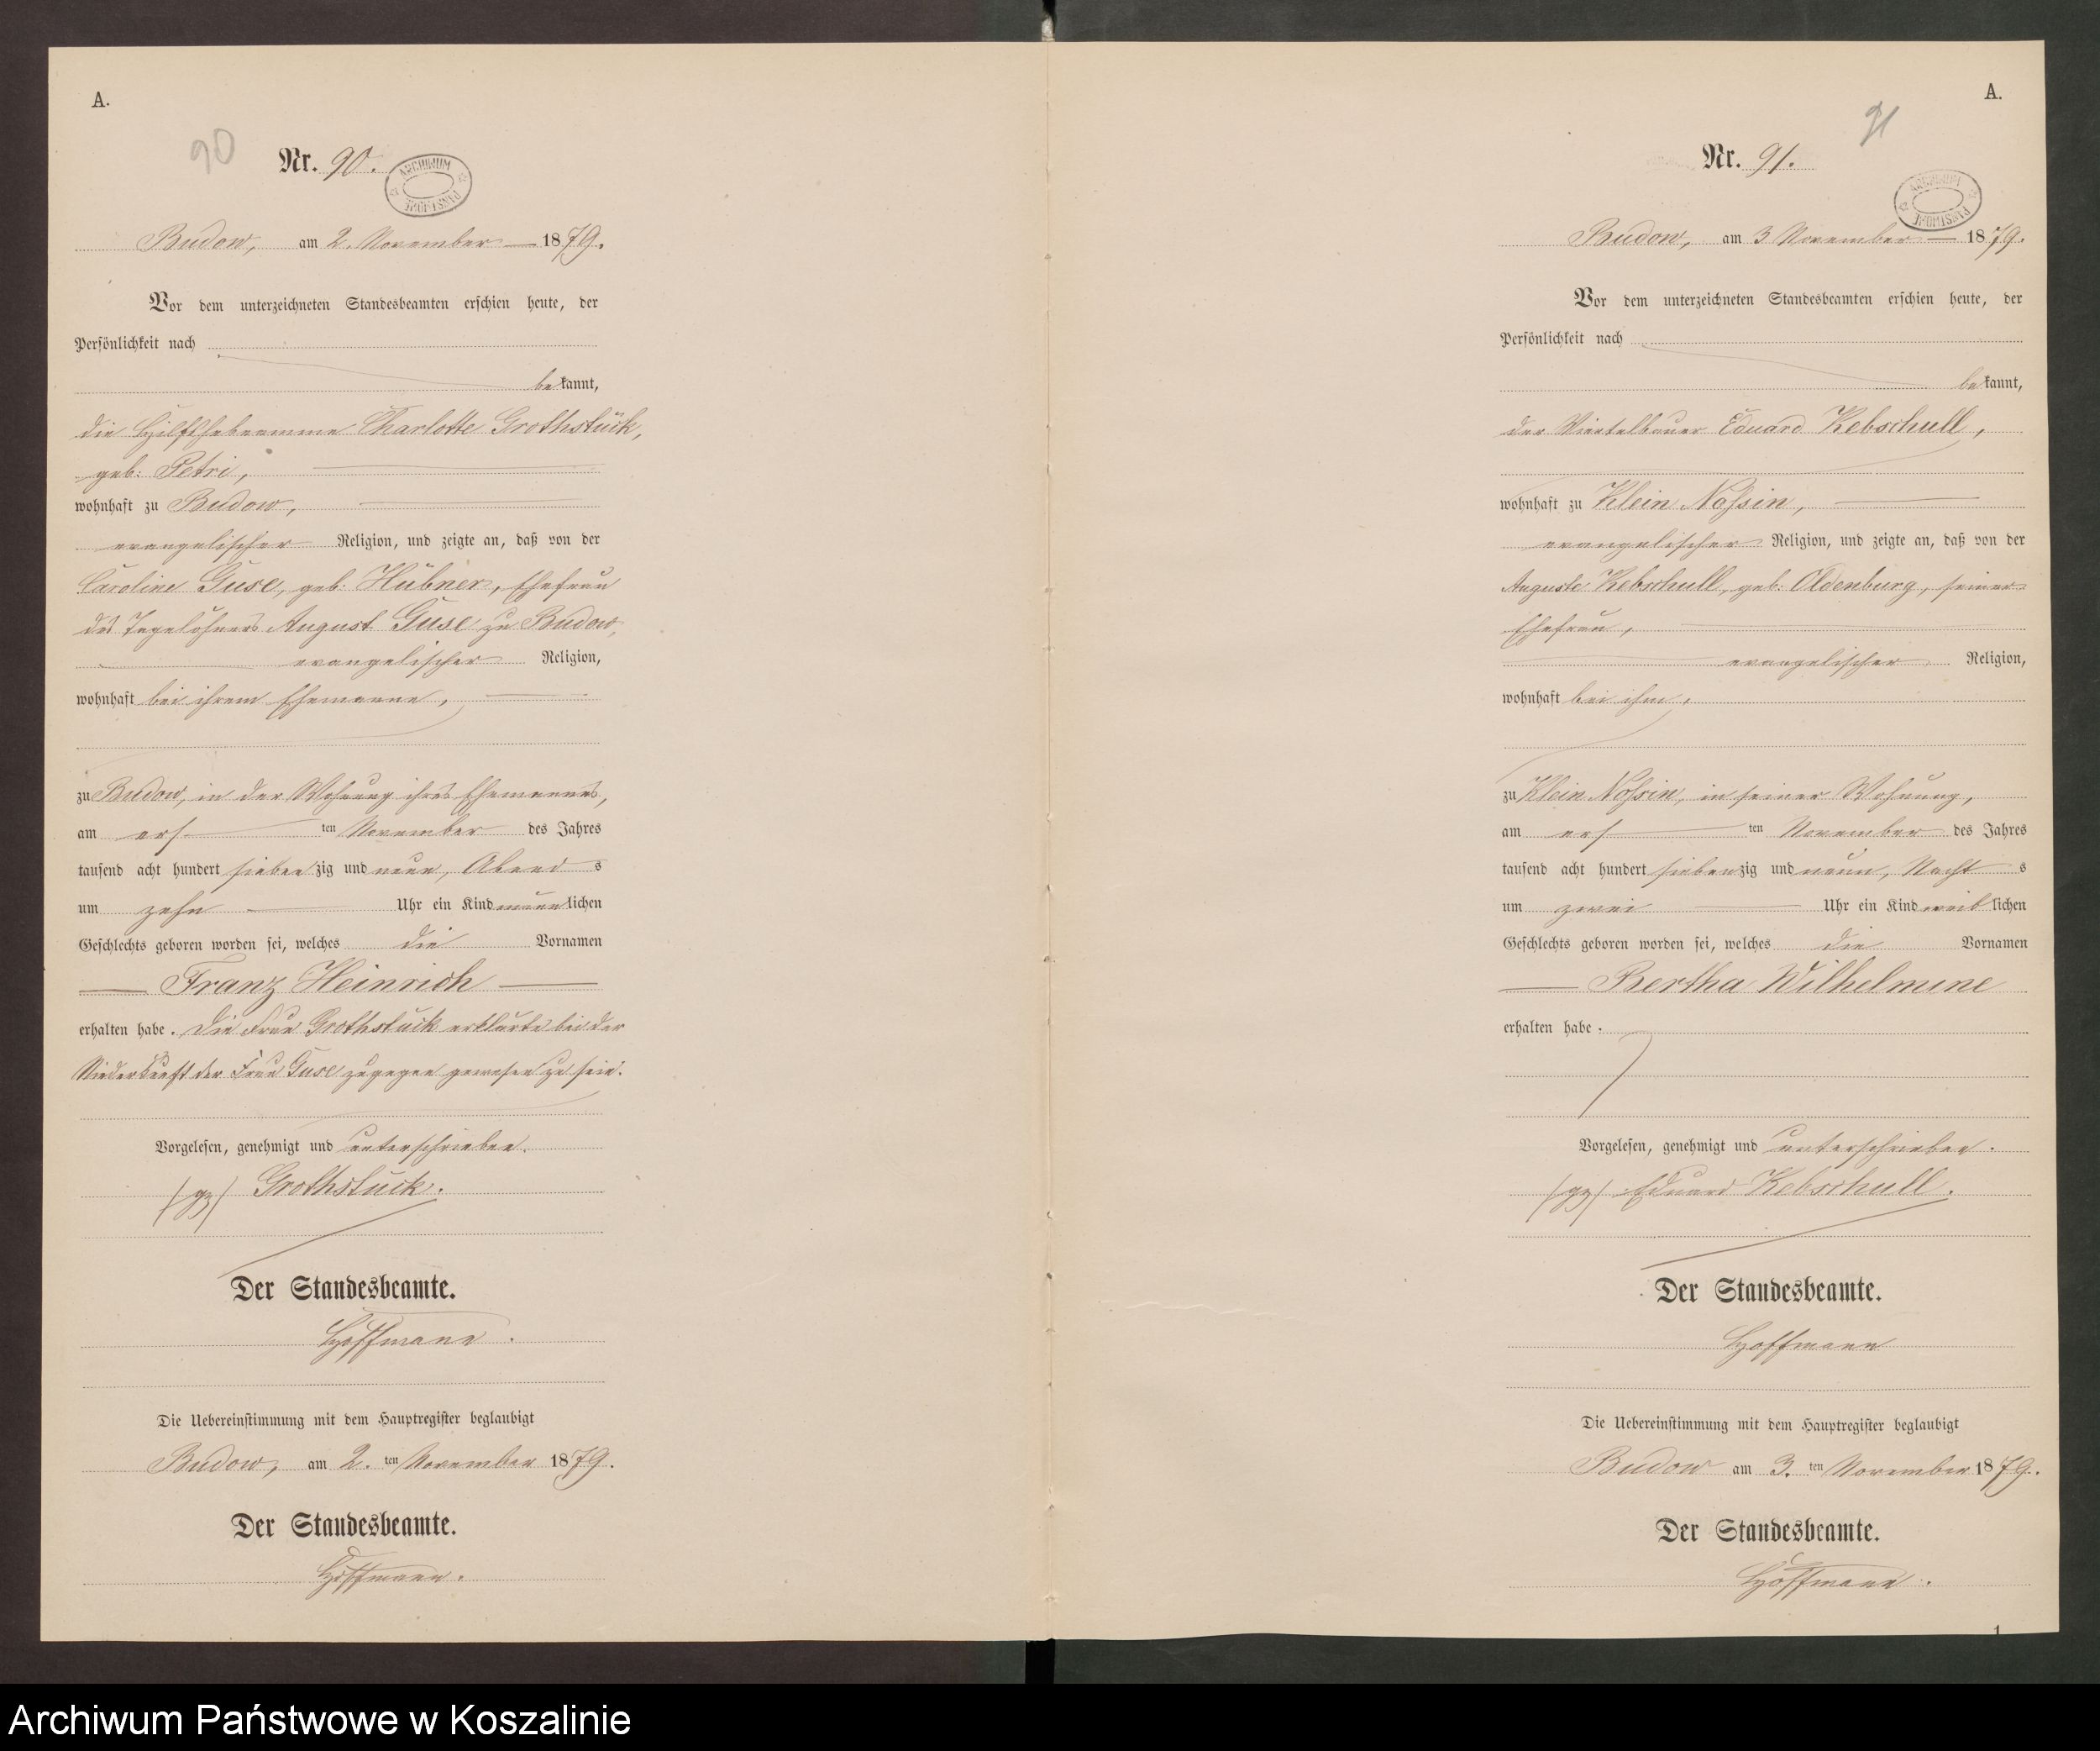 A.
90
Nr. 90.
ARCHIWUM PAŃSTWOWE
Budow, am 2. November 1879.
Vor dem unterzeichneten Standesbeamten erschien heute, der
Persönlichkeit nach
bekannt,
die Hilfshebeamme Charlotte Grothstück,
geb: Petri,
wohnhaft zu Budow,
evangelischer Religion, und zeigte an, daß von der
Caroline Guse, geb: Hübner, Ehefrau
des Tagelöhners August Guse zu Budow,
evangelischer Religion,
wohnhaft bei ihrem Ehemanne,
zu Budow, in der Wohnung ihres Ehemannes,
am ersten November des Jahres
tausend acht hundert siebenzig und neun, Abends
um zehn Uhr ein Kind männlichen
Geschlechts geboren worden sei, welches die Vornamen
Franz Heinrich
erhalten habe. Die Frau Grothstück erklärte bei der
Niederkunft der Frau Guse zugegen gewesen zu sein.
Vorgelesen, genehmigt und unterschrieben.
(gz) Grothstück.
Der Standesbeamte.
Hoffmann.
Die Uebereinstimmung mit dem Hauptregister beglaubigt
Budow, am 2. ten November 1879.
Der Standesbeamte.
Hoffmann.
A.
91
Nr. 91.
ARCHIWUM PAŃSTWOWE
Budow, am 3 November 1879.
Vor dem unterzeichneten Standesbeamten erschien heute, der
Persönlichkeit nach
bekannt,
der Viertelbauer Eduard Kebschull,
wohnhaft zu Klein Nossin,
evangelischer Religion, und zeigte an, daß von der
Auguste Kebschull, geb: Oldenburg, seiner
Ehefrau,
evangelischer Religion,
wohnhaft bei ihm,
zu Klein Nossin, in seiner Wohnung,
am ersten November des Jahres
tausend acht hundert siebenzig und neun, Nachts
um zwei Uhr ein Kind weiblichen
Geschlechts geboren worden sei, welches die Vornamen
Bertha Wilhelmine
erhalten habe.
Vorgelesen, genehmigt und unterschrieben.
(gz) Eduard Kebschull.
Der Standesbeamte.
Hoffmann
Die Uebereinstimmung mit dem Hauptregister beglaubigt
Budow am 3. ten November 1879.
Der Standesbeamte.
Hoffmann.
1
Archiwum Państwowe w Koszalinie